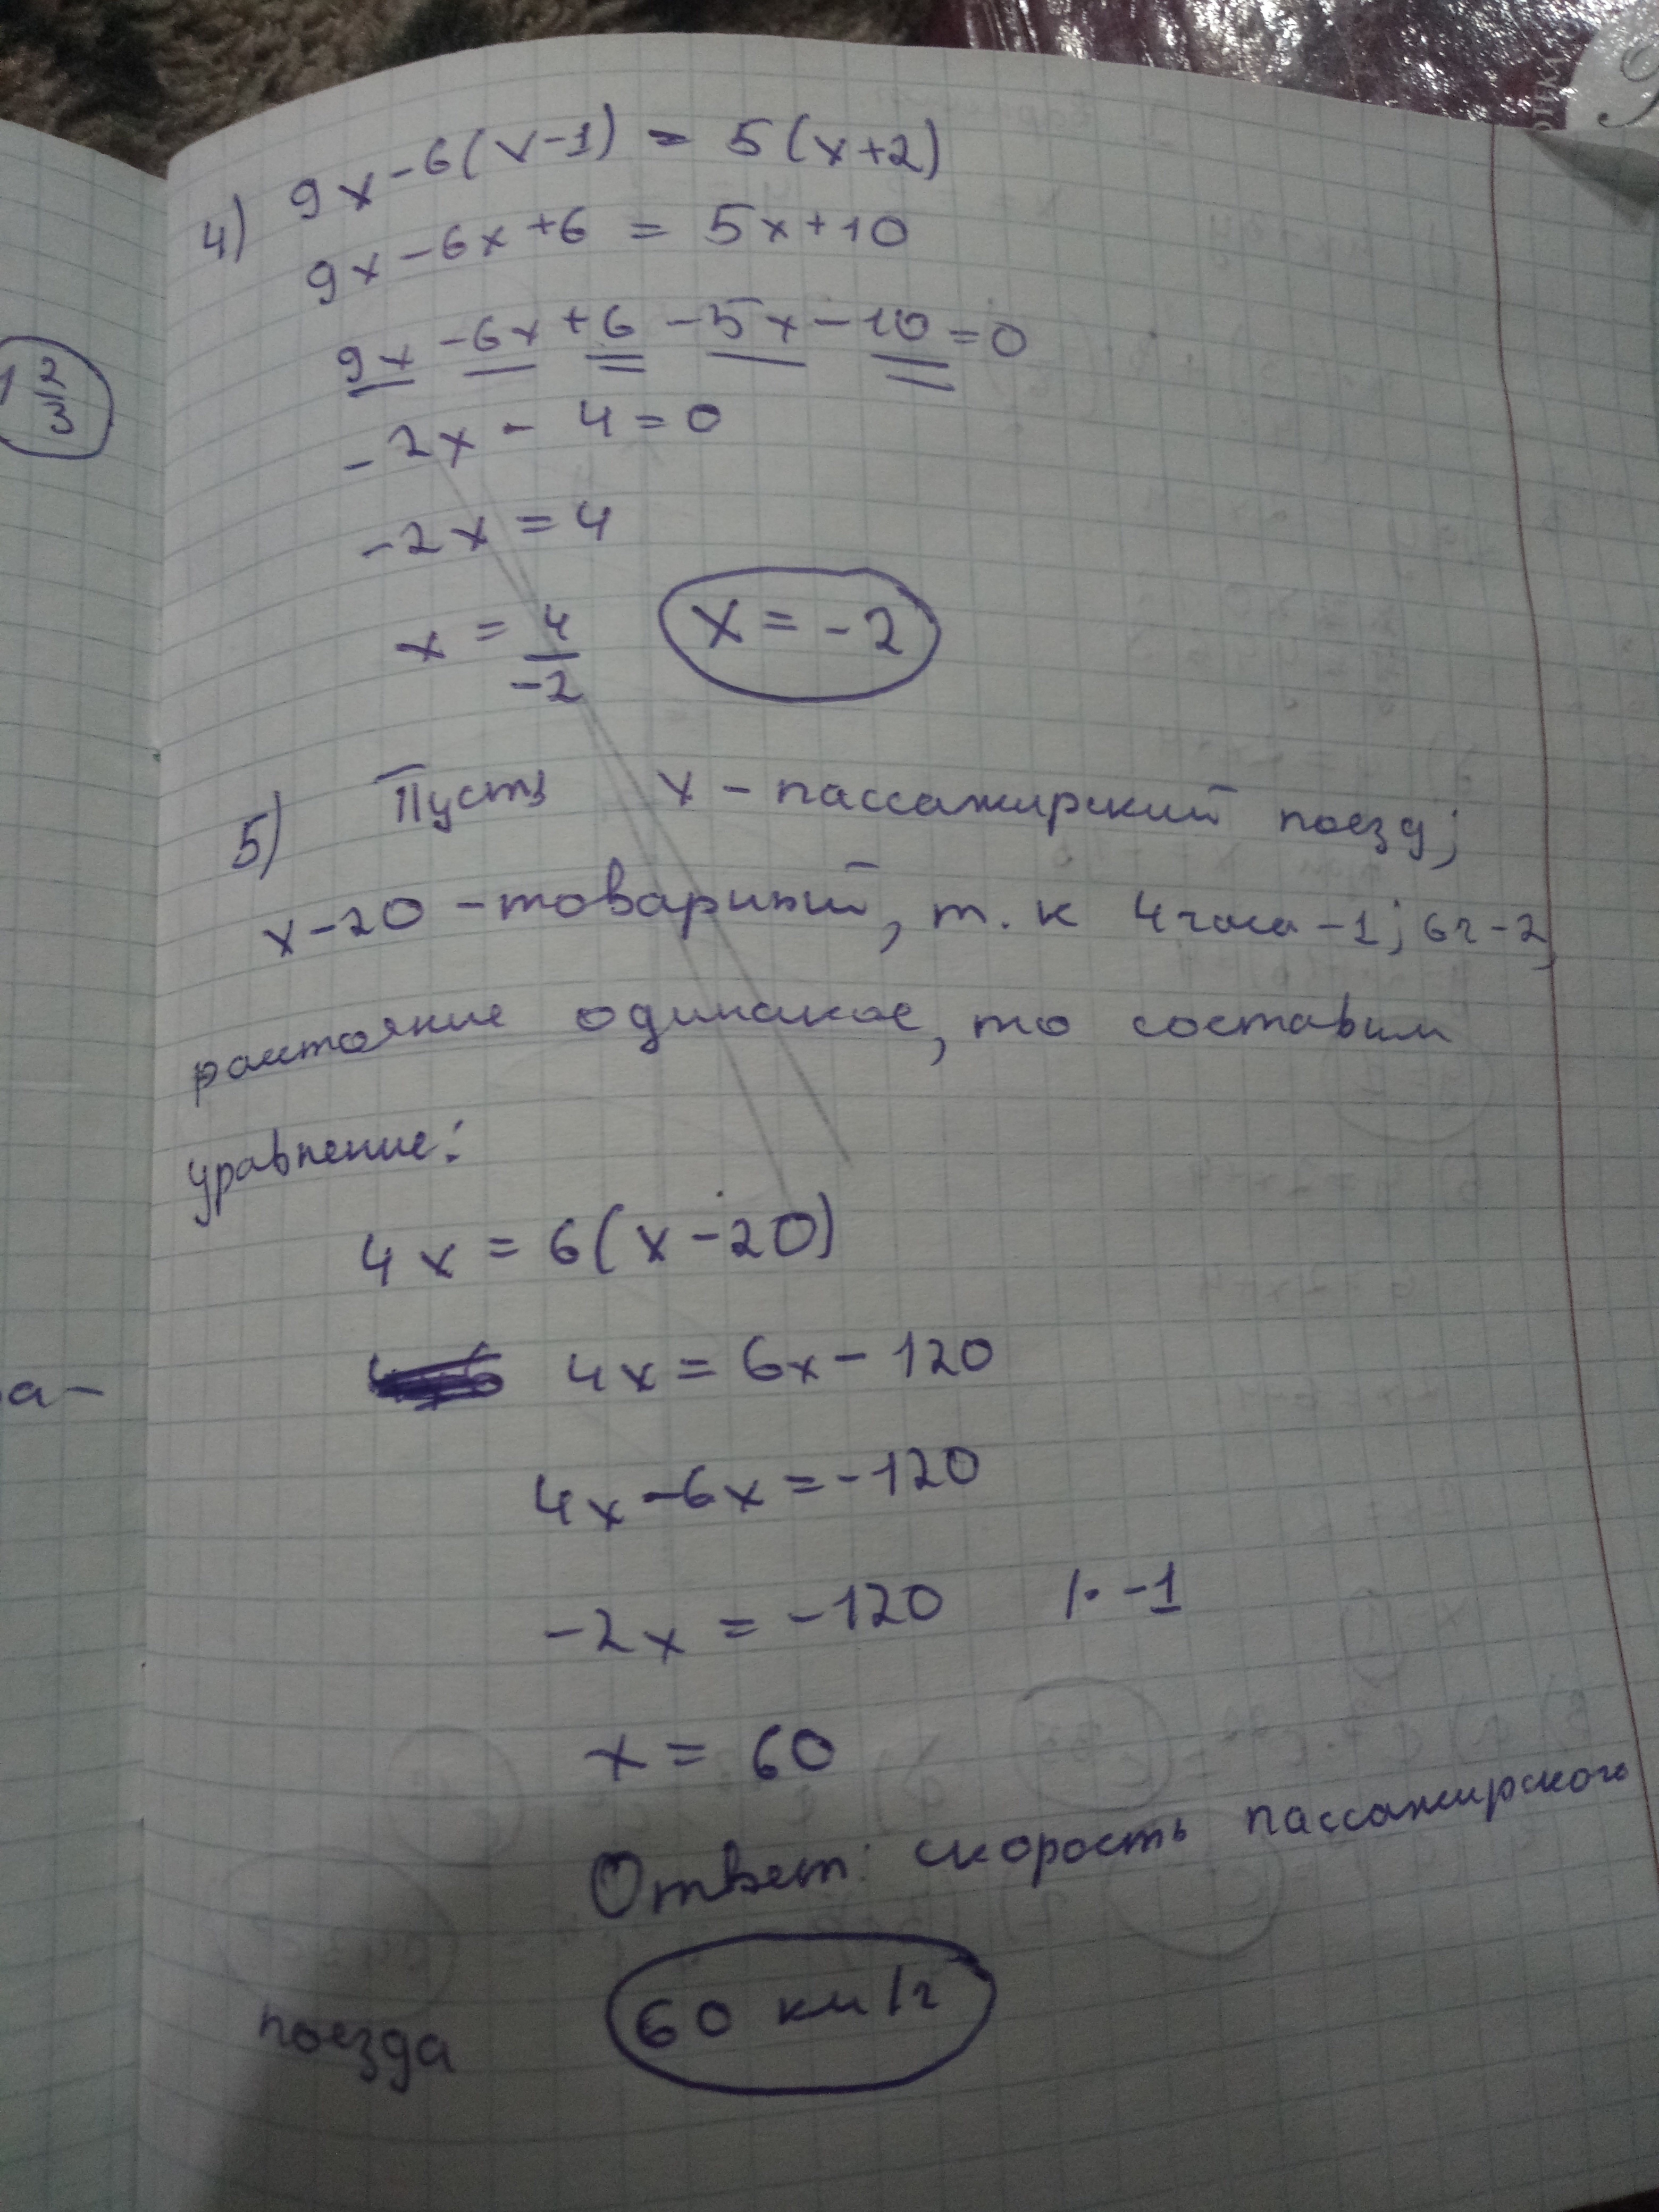 4) 9x-6(x-1) = 5(x+2)
9x-6x+6 = 5x+10
9x-6x+6-5x-10=0
1 2/3
-2x-4=0
-2x=4
x = 4/-2 x=-2
5) Пусть x - пассажирский поезд;
x-20 - товарный, т.к 4 часа - 1; 6ч - 2,
растояние одинакое, то составим
уравнение:
4x = 6(x-20)
4x = 6x - 120
а-
4x - 6x = -120
-2x = -120 |· -1
x = 60
Ответ: скорость пассажирского
поезда 60 км/ч